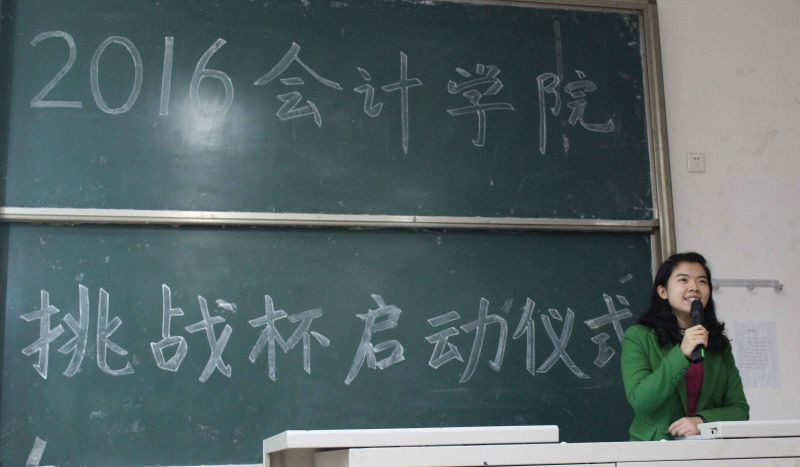 2016会计学院
挑战杯启动仪式